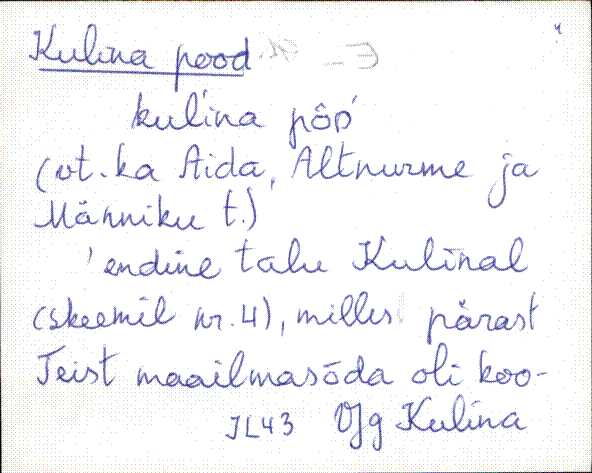 Kulina pood
kulina pôD
(vt. ka Aida, Altnurme ja
Männiku t.)
'endine talu Kulinal
(skeemil nr. 4), milles pärast
Teist maailmasõda oli koo-
JL43 VJg Kulina